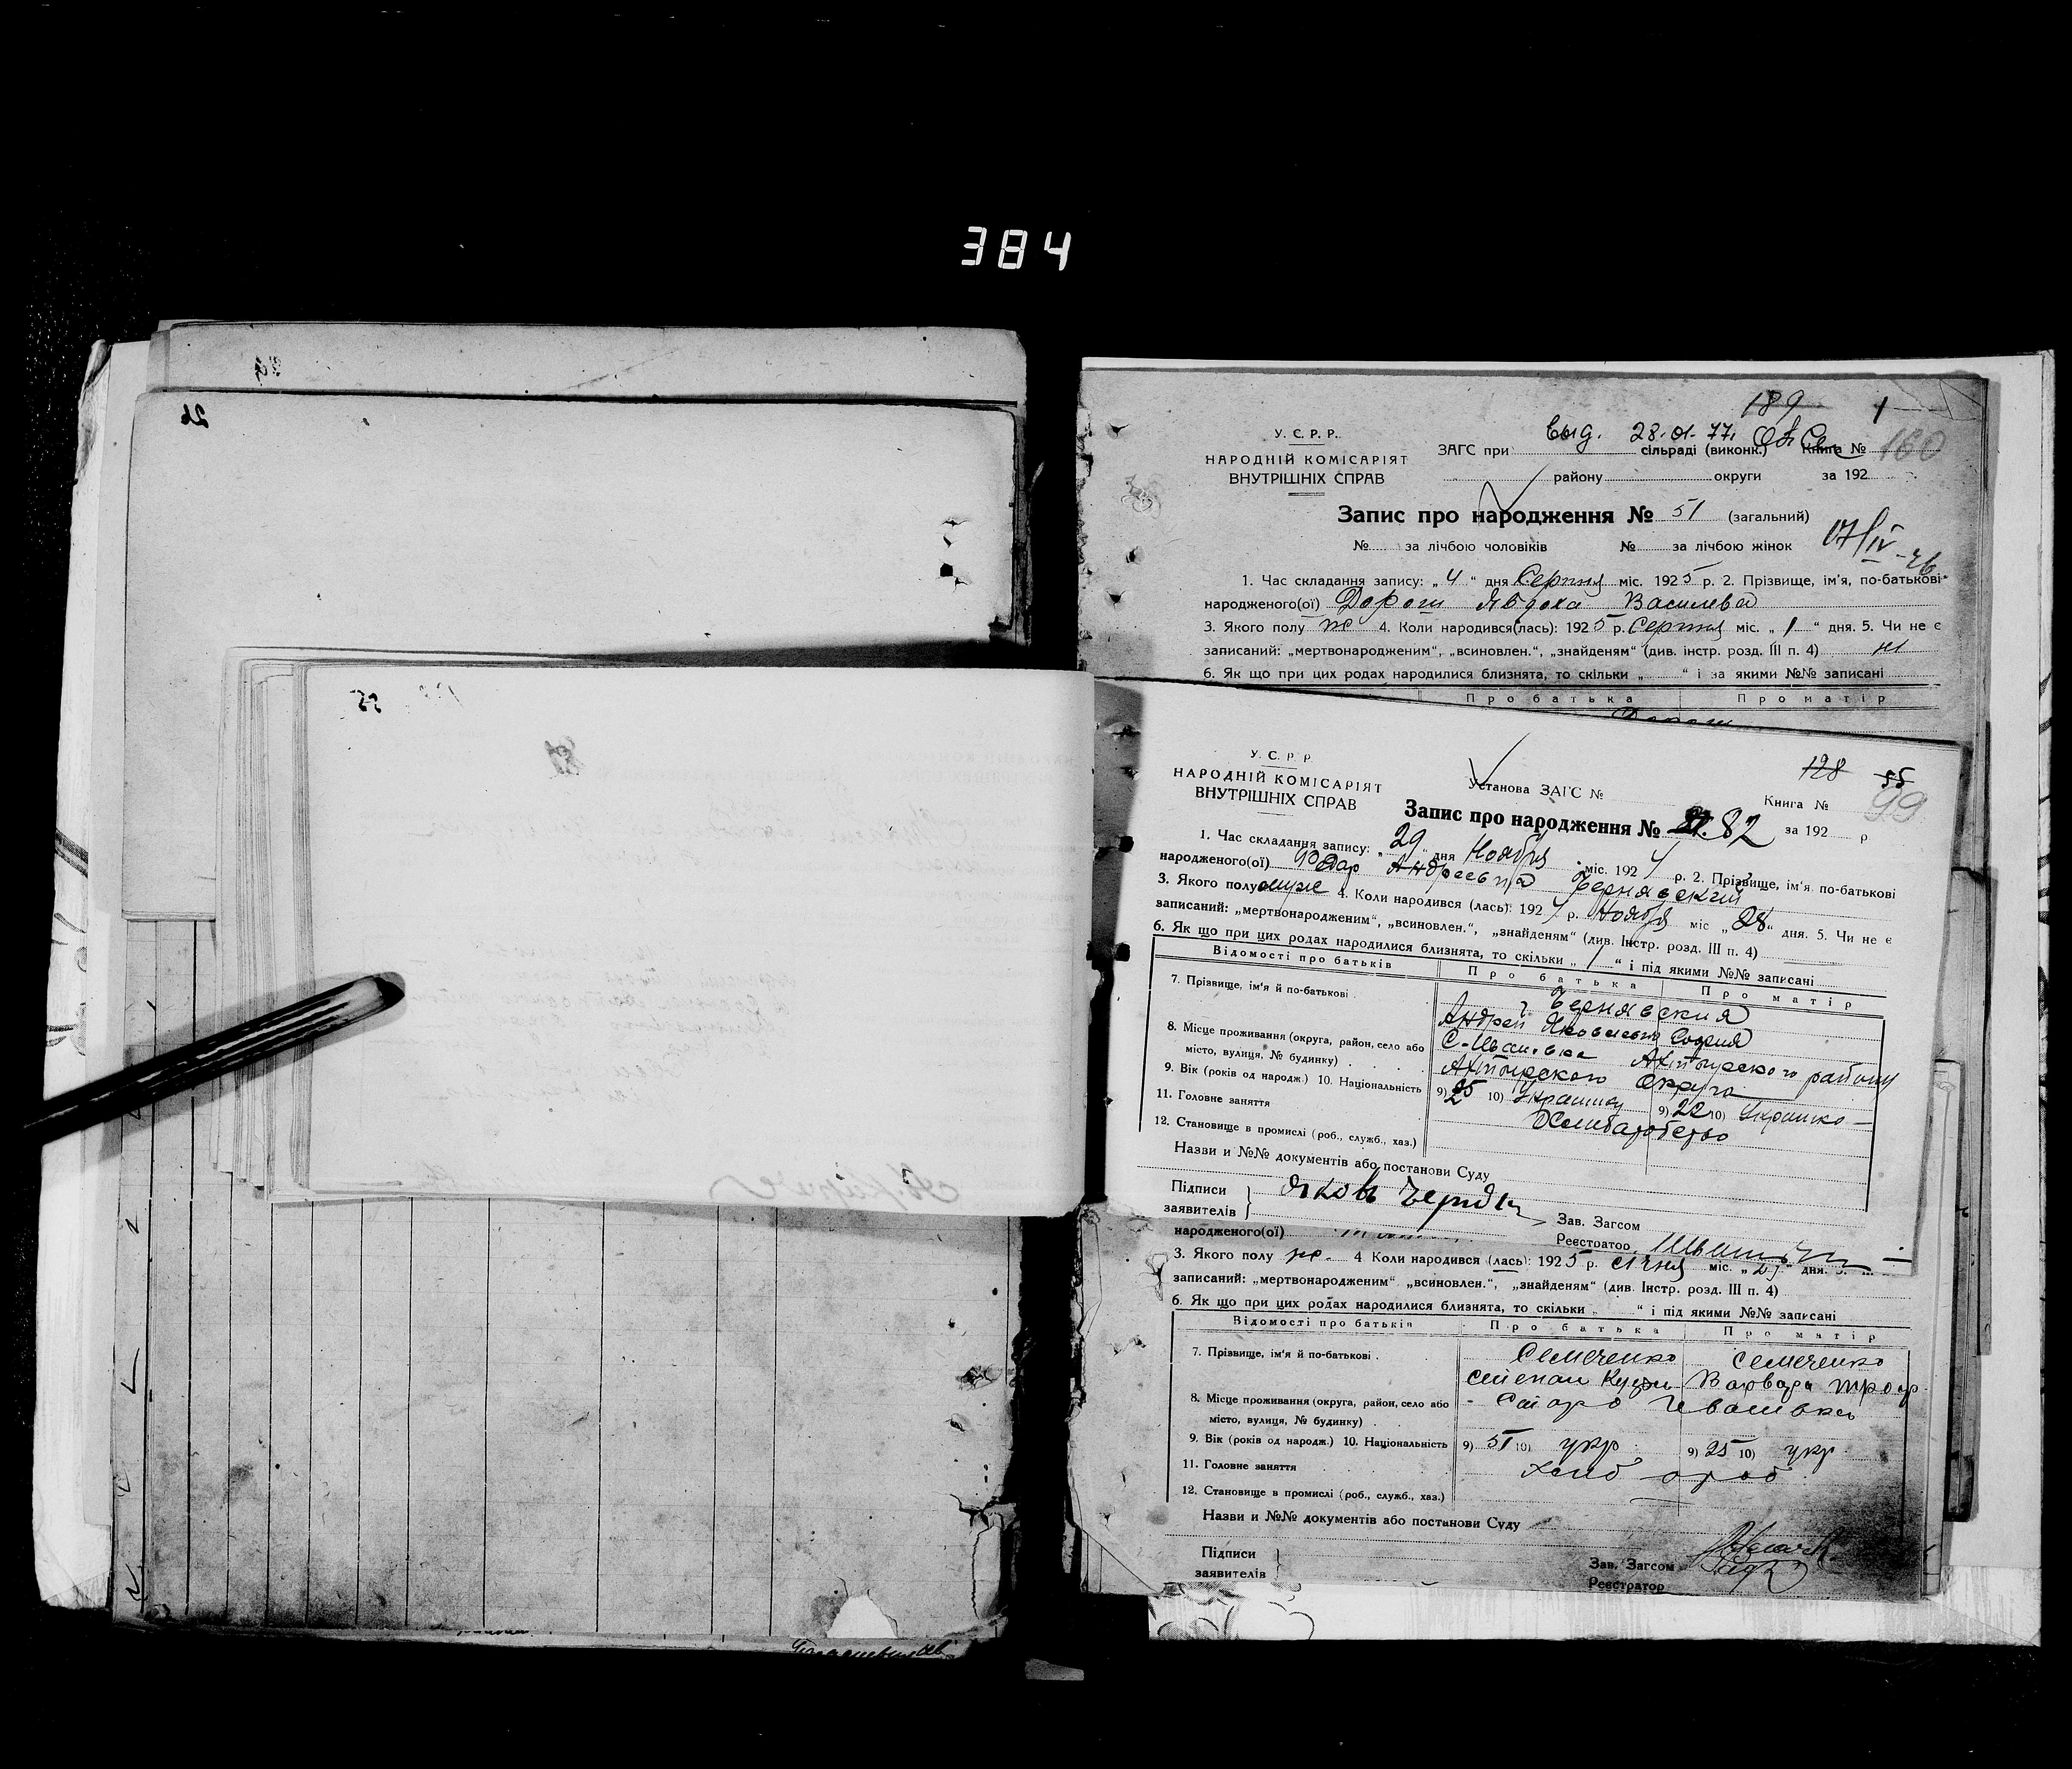 384
26
189 1
У. С. Р. Р.
выд. 28.01.77.
НАРОДНІЙ КОМІСАРІЯТ
ВНУТРІШНІХ СПРАВ
ЗАГС при сільраді (виконк.) Книга № 160
району округи за 192
Запис про народження № 51 (загальний)
№ за лічбою чоловіків № за лічбою жінок 17/IV-26
1. Час складання запису: „ 4 “ дня Серпня міс. 1925 р. 2. Прізвище, ім'я, по-батькові
народженого(ої) Дорош Явдоха Василева
3. Якого полу ж 4. Коли народився(лась): 1925 р. Серпня міс. „ 1 “ дня. 5. Чи не є
записаний: „мертвонародженим“, „всиновлен.“, „знайденям“ (див. інстр. розд. III п. 4) ні
6. Як що при цих родах народилися близнята, то скільки „ “ і за якими №№ записані
Про батька Про матір
Дорош
У. С. Р. Р.
128 55
НАРОДНІЙ КОМІСАРІЯТ
ВНУТРІШНІХ СПРАВ
Установа ЗАГС № Книга № 99
Запис про народження № 82 за 192 р
1. Час складання запису: „ 29 “ дня Ноября міс. 1924 р. 2. Прізвище, ім'я, по-батькові
народженого(ої) Андреевич Чернявский
3. Якого полу муж 4. Коли народився (лась): 1924 р. Ноября міс „ 28 “ дня. 5. Чи не є
записаний: „мертвонародженим“, „всиновлен.“, „знайденям“ (див. Інстр. розд. III п. 4)
6. Як що при цих родах народилися близнята, то скільки „ “ і під якими №№ записані
Відомості про батьків Про батька Про матір
7. Прізвище, ім'я й по-батькові Чернявския
Андрей Яковлевич София
8. Місце проживання (округа, район, село або С-Ивановка Ахтырского району
місто, вулиця, № будинку) Ахтырского Округа
9. Вік (років од народж.) 10. Національність 9) 25 10) Украинец 9) 22 10) Украинка
11. Головне заняття Хлиборобство
12. Становище в промислі (роб., служб., хаз.)
Назви и №№ документів або постанови Суду
Підписи
заявителів Яковъ
Зав. Загсом
Реєстратор
народженого(ої)
3. Якого полу ж. 4 Коли народився (лась): 1925 р. січня міс. „ “ дня.
записаний: „мертвонародженим“ „всиновлен.“, „знайденям“ (див. Інстр. розд. III п. 4)
6. Як що при цих родах народилися близнята, то скільки „ “ і під якими №№ записані
Відомості про батьків Про батька Про матір
7. Прізвище, ім'я й по-батькові Семченко Семченко
Степан Кузм Варвара Троф
8. Місце проживання (округа, район, село або Старо Ивановка
місто, вулиця, № будинку)
9. Вік (років од народж.) 10. Національність 9) 51 10) укр. 9) 25 10) укр.
11. Головне заняття хліб-ороб
12. Становище в промислі (роб., служб., хаз.)
Назви и №№ документів або постанови Суду
Підписи
заявителів
Зав. Загсом
Реєстратор